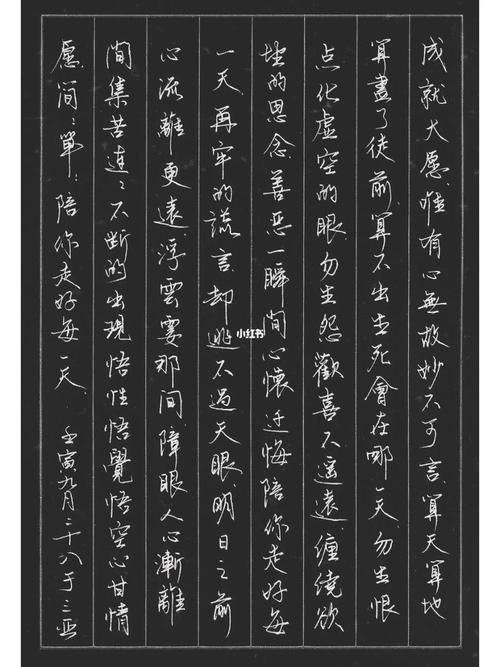 成就大愿唯有心無故妙不可言算天算地
算盡了從前算不出生死會在哪一天勿生恨
点化虛空的眼勿生怨歡喜不遥遠缠绕欲
望的思念善恶一瞬间心懷忏悔陪你走好每
一天再牢的謊言却逃不過天眼明日之前
心流離更遠浮雲霎那间障眼人心漸離
間集苦連〻不断的出現悟性悟覺悟空心甘情
愿简〻單〻陪你走好每一天
壬寅九月二十八于三亚
小红书